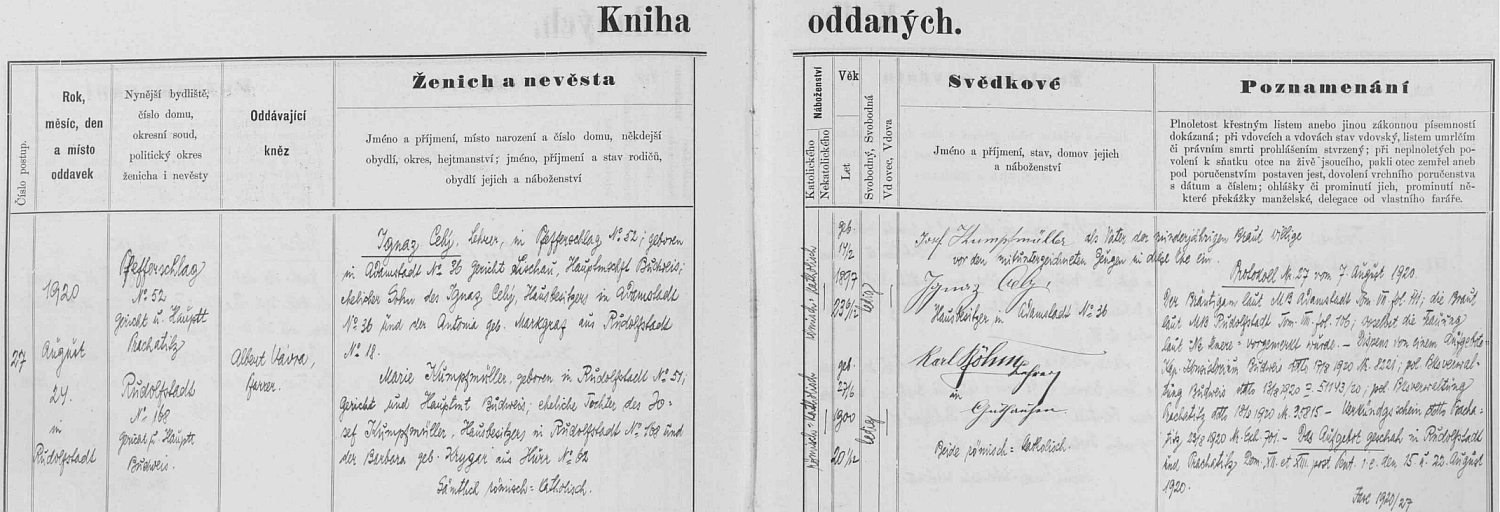 Kniha oddaných.
Číslo postup.
Rok,
měsíc, den
a místo
oddavek
Nynější bydliště,
číslo domu,
okresní soud,
politický okres
ženicha i nevěsty
Oddávající
kněz
Ženich a nevěsta
Jméno a příjmení, místo narození a číslo domu, někdejší
obydlí, okres, hejtmanství; jméno, příjmení a stav rodičů,
obydlí jejich a náboženství
Náboženství
Katolického
Nekatolického
Věk
Let
Svobodný, Svobodná
Vdovec, Vdova
Svědkové
Jméno a příjmení, stav, domov jejich
a náboženství
Poznamenání
Plnoletost křestným listem anebo jinou zákonnou písemností
dokázaná; při vdovcích a vdovách stav vdovský, listem umrlčím
či právním smrti prohlášením stvrzený; při neplnoletých po-
volení k sňatku otce na živě jsoucího, pakli otec zemřel aneb
pod poručenstvím postaven jest, dovolení vrchního poručenstva
s dátum a číslem; ohlášky či prominutí jich, prominutí ně-
které překážky manželské, delegace od vlastního faráře.
27
1920
August
24.
in
Rudolfstadt
Pfefferschlag
No 52
Gericht u. Hauptt
Prachatitz
Rudolfstadt
No 168
Gericht u. Hauptt
Budweis.
Albert Vávra,
Pfarrer.
Ignaz Cehj, Lehrer, in Pfefferschlag No 52; geboren
in Adamstadt No 36 Gericht Lischau, Hauptmschft Budweis;
ehelicher Sohn des Ignaz Cehj, Hausbesitzers in Adamstadt
No 36 und der Antonia geb. Markgraf aus Rudolfstadt
No 18.
Marie Kumpfmüller, geboren in Rudolfstadt No 51,
Gericht und Hauptmt Budweis; eheliche Tochter des Jo-
sef Kumpfmüller, Hausbesitzers in Rudolfstadt No 168 und
der Barbara geb. Krygar aus Hurr No 62
Sämtlich römisch=katholisch.
römisch=katholisch
geb.
11/2
1897
23 6/12
ledig
römisch=katholisch
geb.
27/6
1900
20 1/12
ledig
Josef Kumpfmüller als Vater der minderjährigen Braut willige
vor den mitunterzeichneten Zeugen in diese Ehe ein.
Ignaz Cehj,
Hausbesitzer in Adamstadt No 36
Karl Böhm
Lehrer
in
Guthausen.
Beide römisch=katholisch.
Protokoll Nr. 27 vom 7 August 1920.
Der Bräutigam laut MB Adamstadt Tom VII fol. 44; die Braut
laut MB Rudolfstadt Tom. VII. fol. 106; woselbst die Trauung
laut Ne temere vorgemerkt wurde. – Dispens von einem Aufgebote
Budweis 17/8 1920 N. 2221; pol. Bezverwal-
tung Budweis 13/8 1920 Z. 51143/20; pol. Bezverwaltung
Prachatitz 1920 N. 25815 – Verkündschein Pracha-
titz 23/8 1920 N. 701. – Das Aufgebot geschah in Rudolfstadt
und Prachatitz Dom. XII. et XIII. post Pent. i. e. den 15. u. 22. August
1920.
Fasc 1920/27